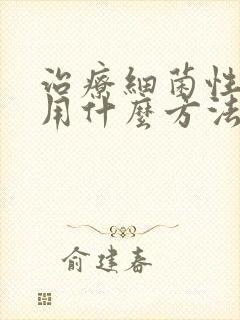 治療細菌性
用什麼方法
俞建春